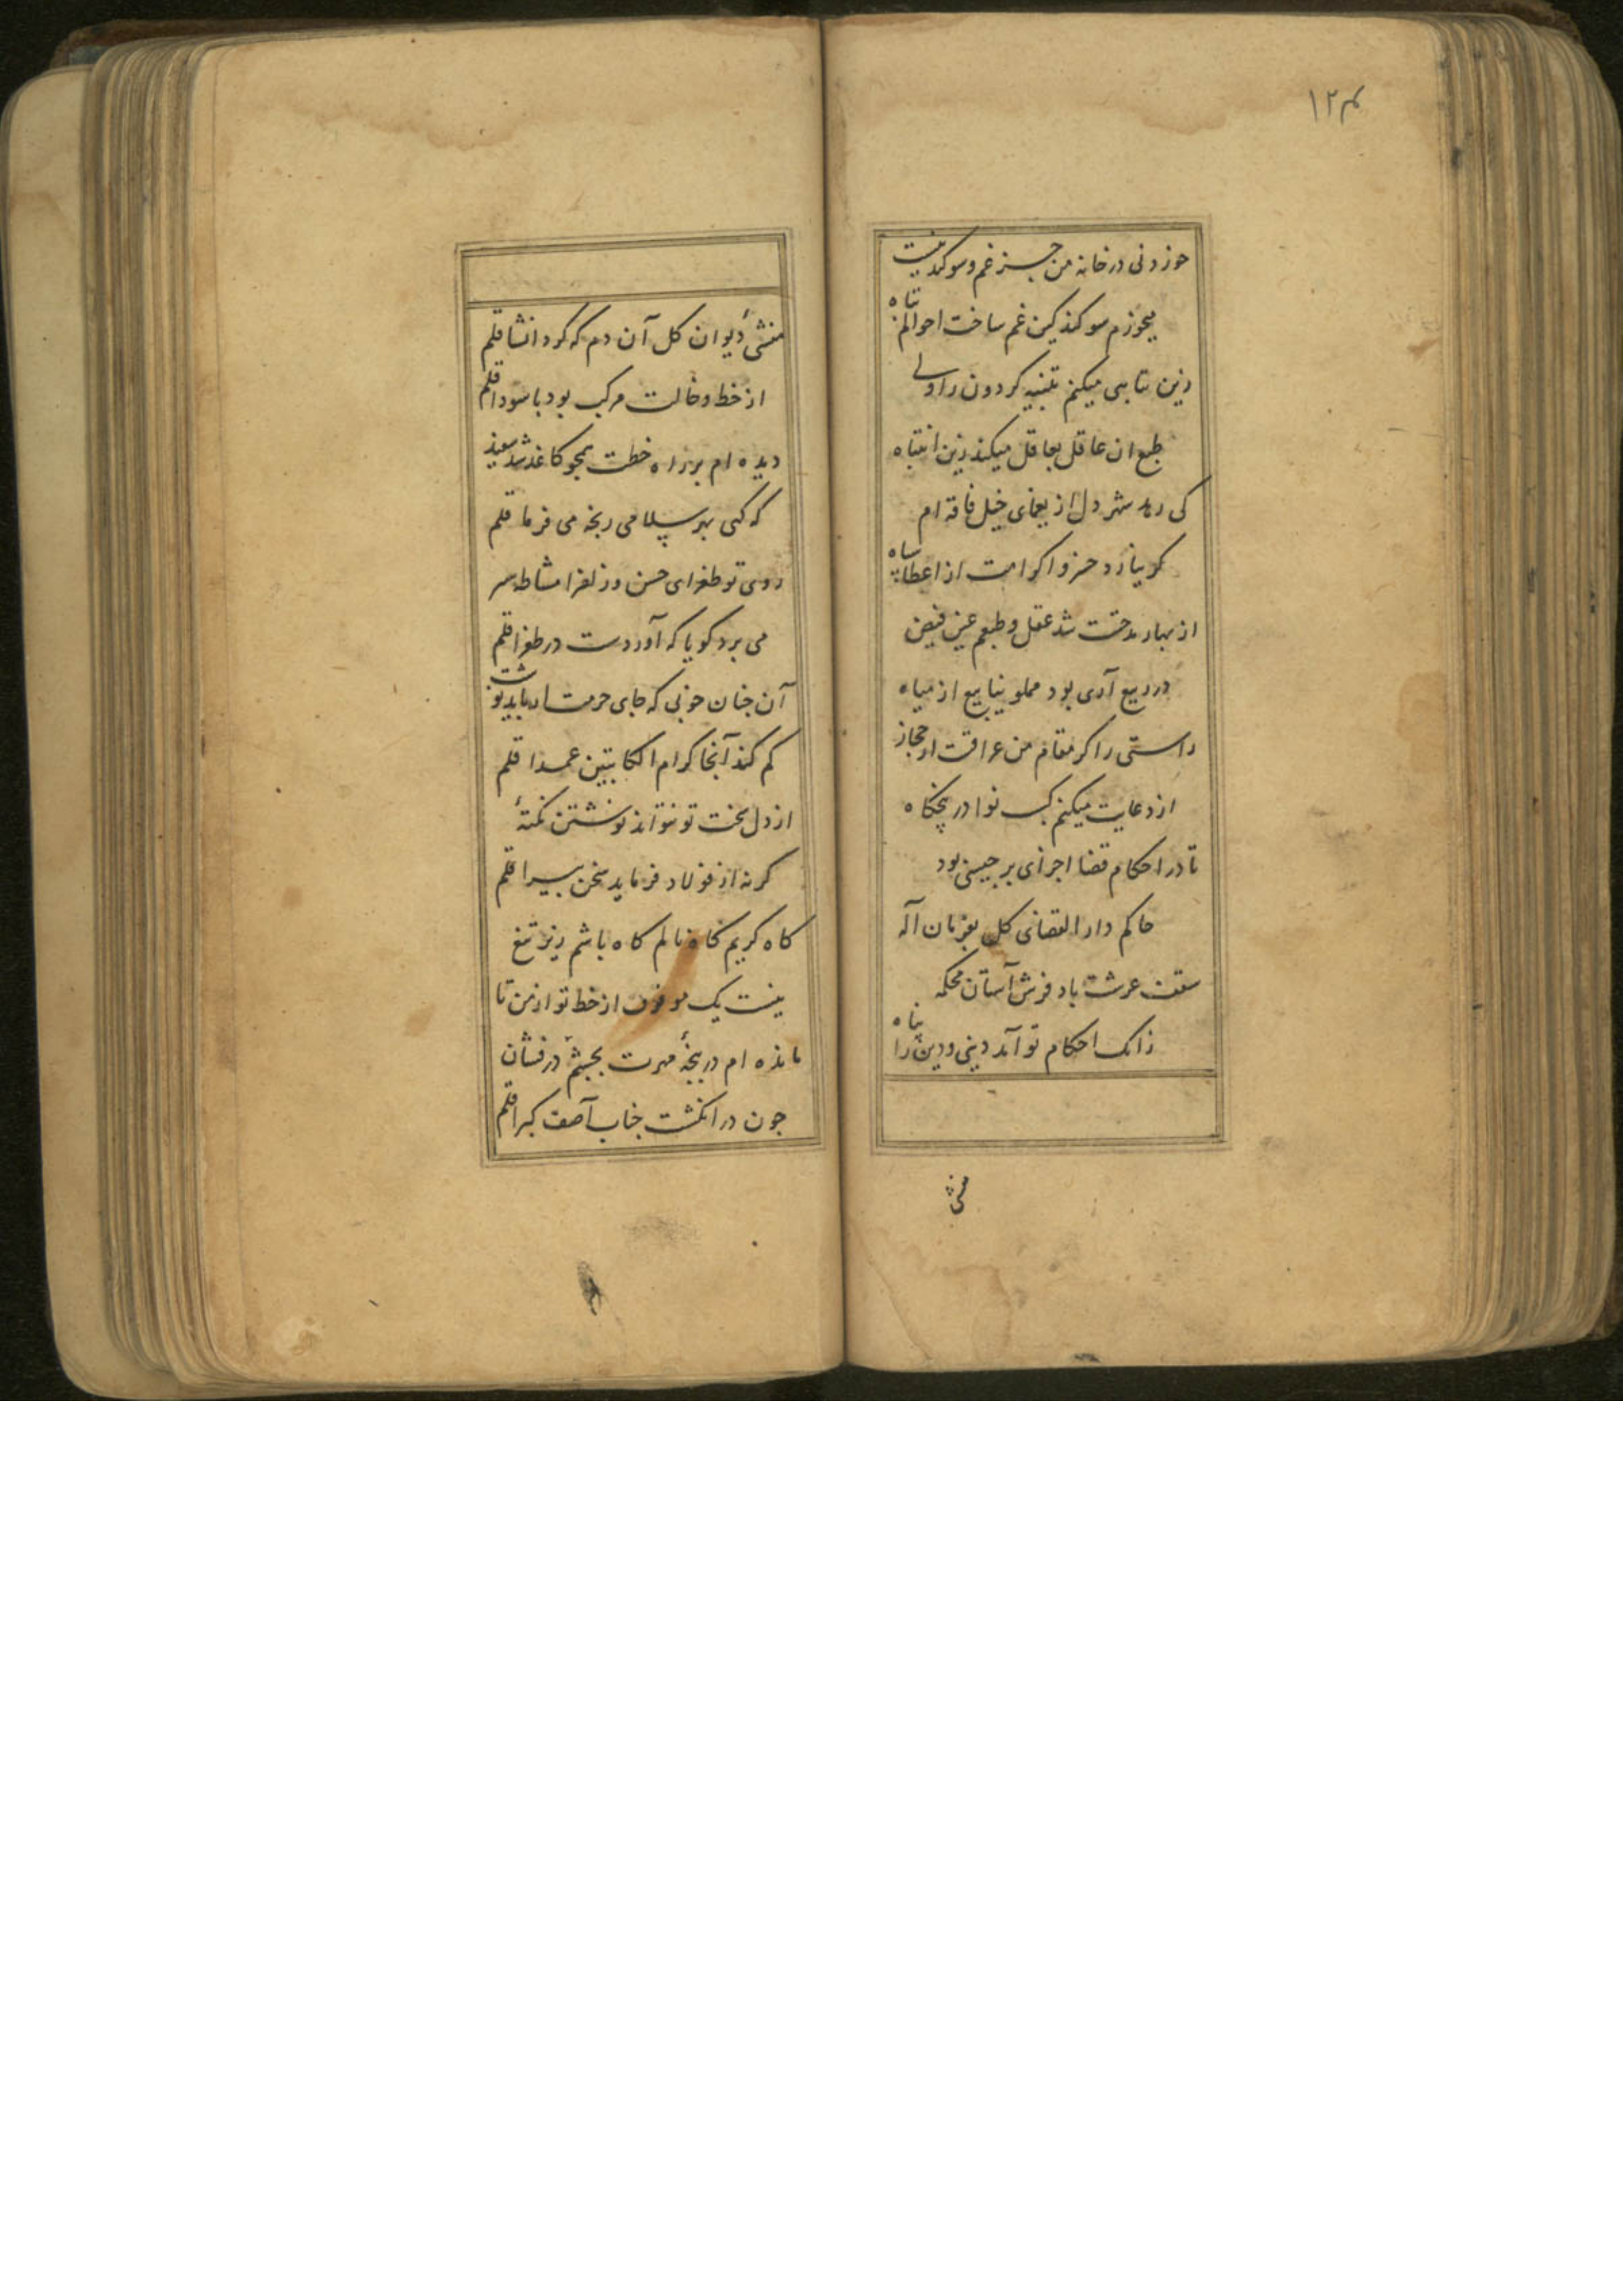 ۱۲۴
خوردنی در خانهٔ من جز غم و سوکند نیست
میخورم سوکند کین غم ساخت احوالم تباه
زین تباهی میکنم تنبیه کردون را ولی
طبع ان عاقل بعاقل میکند زین انتباه
کی رهد شهر دل از یغمای خیل فاقه ام
کر نیارد حزو اکرامت از اعطا سپاه
از بهار مدحتت شد عقل و طبعم عین فیض
در ربیع آری بود مملو ینابیع از میاه
راستی را کر مقام من عراقست ار حجاز
از دعایت میکنم کسب نوا در پنجکاه
تا در احکام قضا اجرای برجیسی بود
حاکم دار القضای کل بفرمان اله
سقف عرشت باد فرش آستان محکمه
زانک احکام تو آمد دینی و دین را پناه
منشی
منشیٔ دیوان کل آن دم که کرد انشا قلم
از خط و خالت مرکب بود با سودا قلم
دیده ام بر راه خطت همچو کاغذ شد سفید
که کهی بهر سلامی رنجه می فرما قلم
روی تو طغرای حسن و زلف را مشاطه سر
می برد کویا که آوردست در طغرا قلم
آن چنان خوبی که جای حرمت ار باید نوشت
کم کند آنجا کرام الکاتبین عمدا قلم
از دل سخت تو نتواند نوشتن نکتهٔ
کرنه از فولاد فرماید سخن پیرا قلم
کاه کریم کاه نالم کاه باشم زیر تیغ
نیست یک مو فرق از خط تو از من تا
مانده ام در پنجهٔ مهرت بچشم درفشان
چون در انکشت جناب آصف کبرا قلم